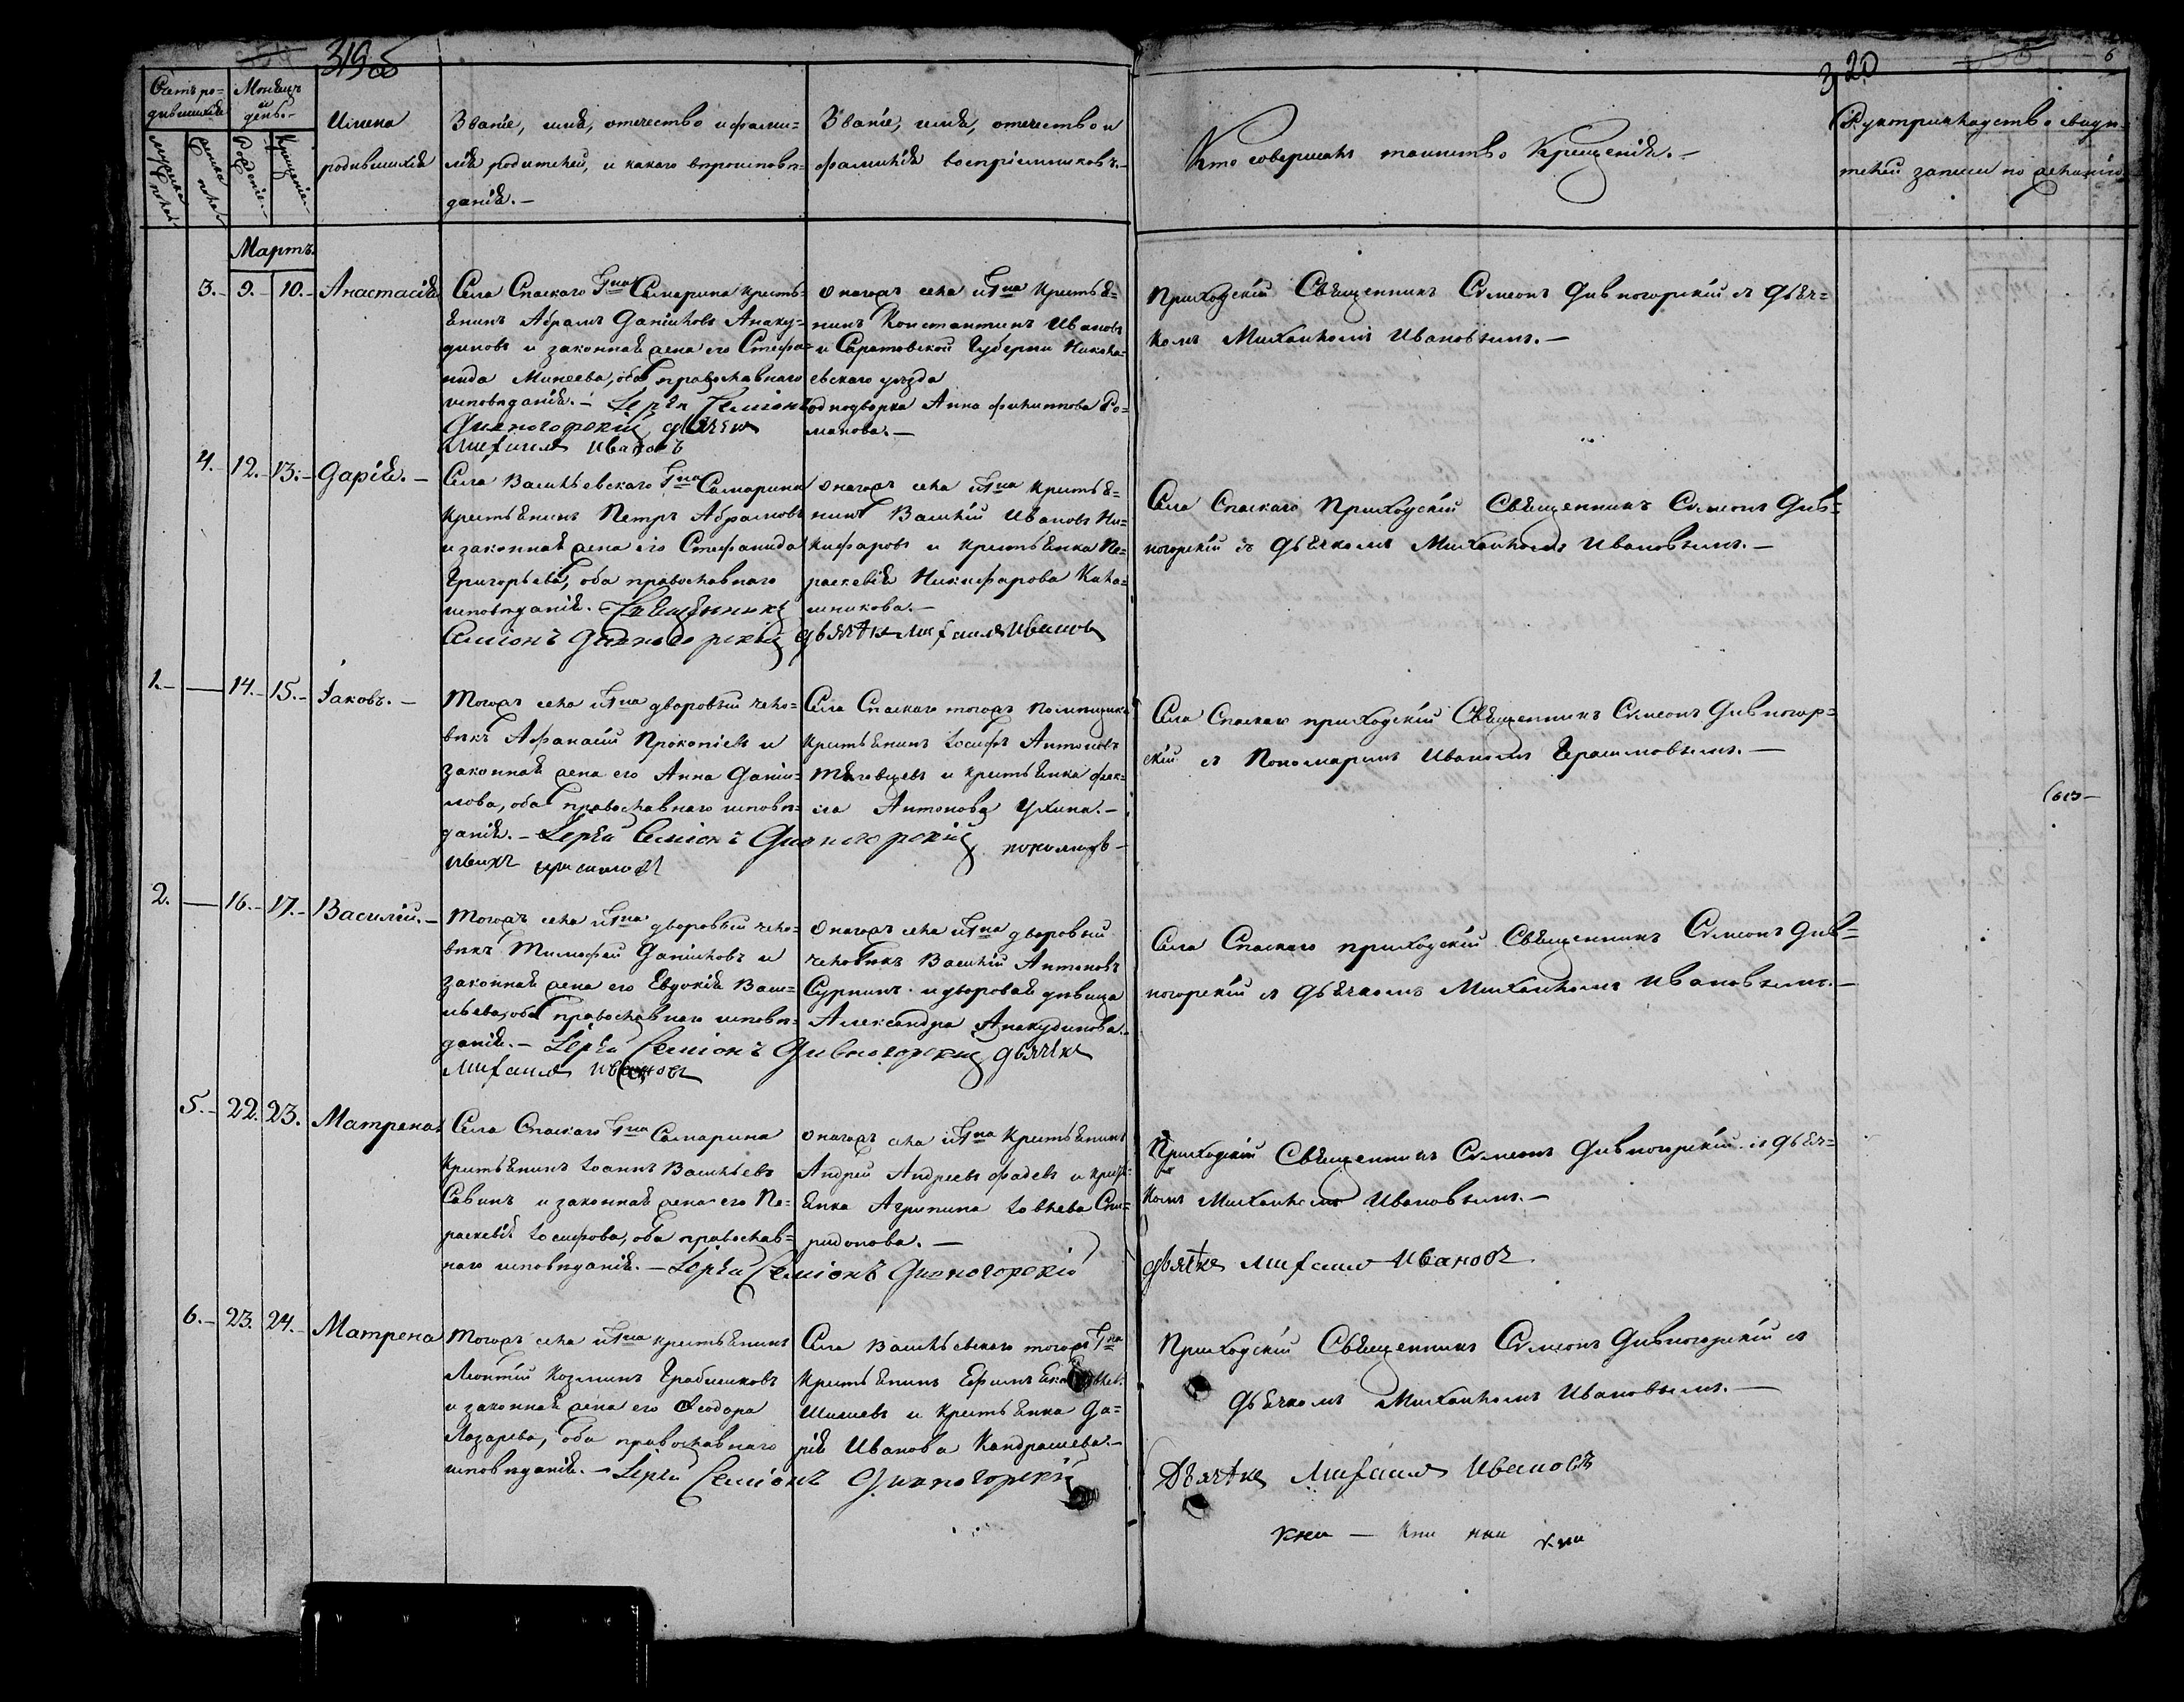 319об
320
6
Счетъ ро-
дившихся
Мѣсяцъ
и
день.-
мужеска
пола
женска
пола
Рожденія.-
Крещенія.-
Имена
родившихся
Званіе, имя, отечество и фами=
лія родителей, и какого вѣроисповѣ=
данія.-
Званіе, имя, отечество и
фамилія воспріемниковъ.-
Кто совершалъ таинство Крещенія.-
Рукоприкладство свидѣ=
телей записи по желанію
Мартъ.
3.- 9.- 10.- Анастасія
Села Спаскаго Гна Самарина кресть=
янинъ Абрамъ Даниловъ Анаку=
диновъ и законная жена его Стефа=
нида Минеева, оба православнаго
исповѣданія.- Іерѣй Семіонъ
Дивногорскій дьячекъ
Михаилъ Ивановъ
Онагожъ села и Гна крестья=
нинъ Константинъ Ивановъ
и Саратовской Губерни Никола=
евскаго уѣзда
однодворка Анна Филиппова Ро=
манова.-
Приходскій Священникъ Сѵмеонъ Дивногорскій съ дьяч=
комъ Михаиломъ Ивановымъ.-
4.- 12.- 13.- Дарія.-
Села Васильевскаго Гна Самарина
крестьянинъ Петръ Абрамовъ
и законная жена его Стефанида
Григорьева, оба православнаго
исповѣданія.- Священникъ
Семіонъ Дивногорскій дьячекъ Михаилъ Ивановъ
Онагожъ села и Гна крестья=
нинъ Василій Ивановъ Ни=
кифаровъ и крестьянка Па=
раскевія Никифарова Кала=
шникова.-
Села Спаскаго Приходскій Священникъ Сѵмеонъ Див=
ногорскій съ дьячкомъ Михаиломъ Ивановымъ.-
1.- — 14.- 15.- Іаковъ.-
Тогожъ села и Гна дворовый чело=
вѣкъ Афанасій Прокопіевъ и
законная жена его Анна Дани=
лова, оба православнаго исповѣ=
данія.- Іерѣй Семіонъ Дивногорскій пономарь
Иванъ Герасимовъ
Села Спаскаго тогожъ помѣщика
крестьянинъ Іосифъ Антоновъ
Тяговцевъ и крестьянка Фек=
ла Антонова Ухина.-
Села Спаскаго приходскій Священникъ Сѵмеонъ Дивногор=
скій съ Пономаремъ Иваномъ Герасимовымъ.-
2. — 16.- 17.- Василій.-
Тогожъ села и Гна дворовый чело=
вѣкъ Тимофей Даниловъ и
законная жена его Евдокія Васи=
льева, оба православнаго исповѣ=
данія.- Іерѣй Семіонъ Дивногорскій дьячекъ
Михаилъ Ивановъ
Онагожъ села и Гна дворовый
человѣкъ Василій Антоновъ
Сурнинъ и дворовая дѣвица
Александра Анакудинова.
Села Спаскаго приходскій Священникъ Сѵмеонъ Див=
ногорскій съ дьячкомъ Михаиломъ Ивановымъ.-
5.- 22. 23. Матрена
Села Спаскаго Гна Самарина
крестьянинъ Іоаннъ Васильевъ
Савинъ и законная жена его Па=
раскевія Іосифова, оба православ=
наго исповѣданія.- Іерѣй Семіонъ Дивногорскій
Онагожъ села и Гна крестьянинъ
Андрей Андреевъ Фадеевъ и крест=
янка Агрипина Іовлева Спи=
ридонова.-
Приходскій Священникъ Сѵмеонъ Дивногорскій съ дьяч=
комъ Михаиломъ Ивановымъ.-
дьячекъ Михаилъ Ивановъ
6.- 23. 24.- Матрена
Тогожъ села и Гна крестьянинъ
Леонтій Козминъ Грабильновъ
и законная жена его Ѳеодора
Лазарева, оба православнаго
исповѣданія.- Іерѣй Семіонъ Дивногорскій
Села Васильевскаго тогожъ Гна
крестьянинъ Ефимъ
Шишевъ и крестьянка Да=
рія Иванова Кандрашева.-
Приходскій Священникъ Сѵмеонъ Дивногорскій съ
дьячкомъ Михаиломъ Ивановымъ.-
Дьячекъ Михаилъ Ивановъ
кни — кни кни кни